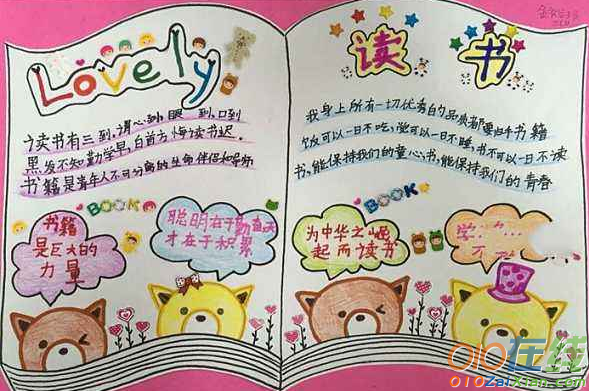 Lovely
读书有三到,谓心到,眼到,口到
黑发不知勤学早,白首方悔读书迟。
书籍是青年人不可分离的生命伴侣和导师
BOOK
书籍
是巨大的
力量
聪明在于勤奋,天
才在于积累
读书
我身上所有一切优秀的品质都要归于书籍
饭可以一日不吃,觉可以一日不睡,书不可以一日不读
书,能保持我们的童心;书,能保持我们的青春
BOOK
为中华之崛
起而读书
学
不
010在线
010zaixian.com